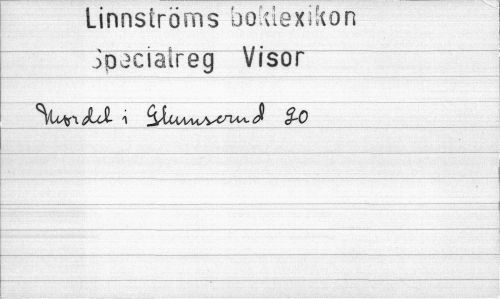 Linnströms boklexikon
Specialreg Visor
Mordet i Glumserud 20